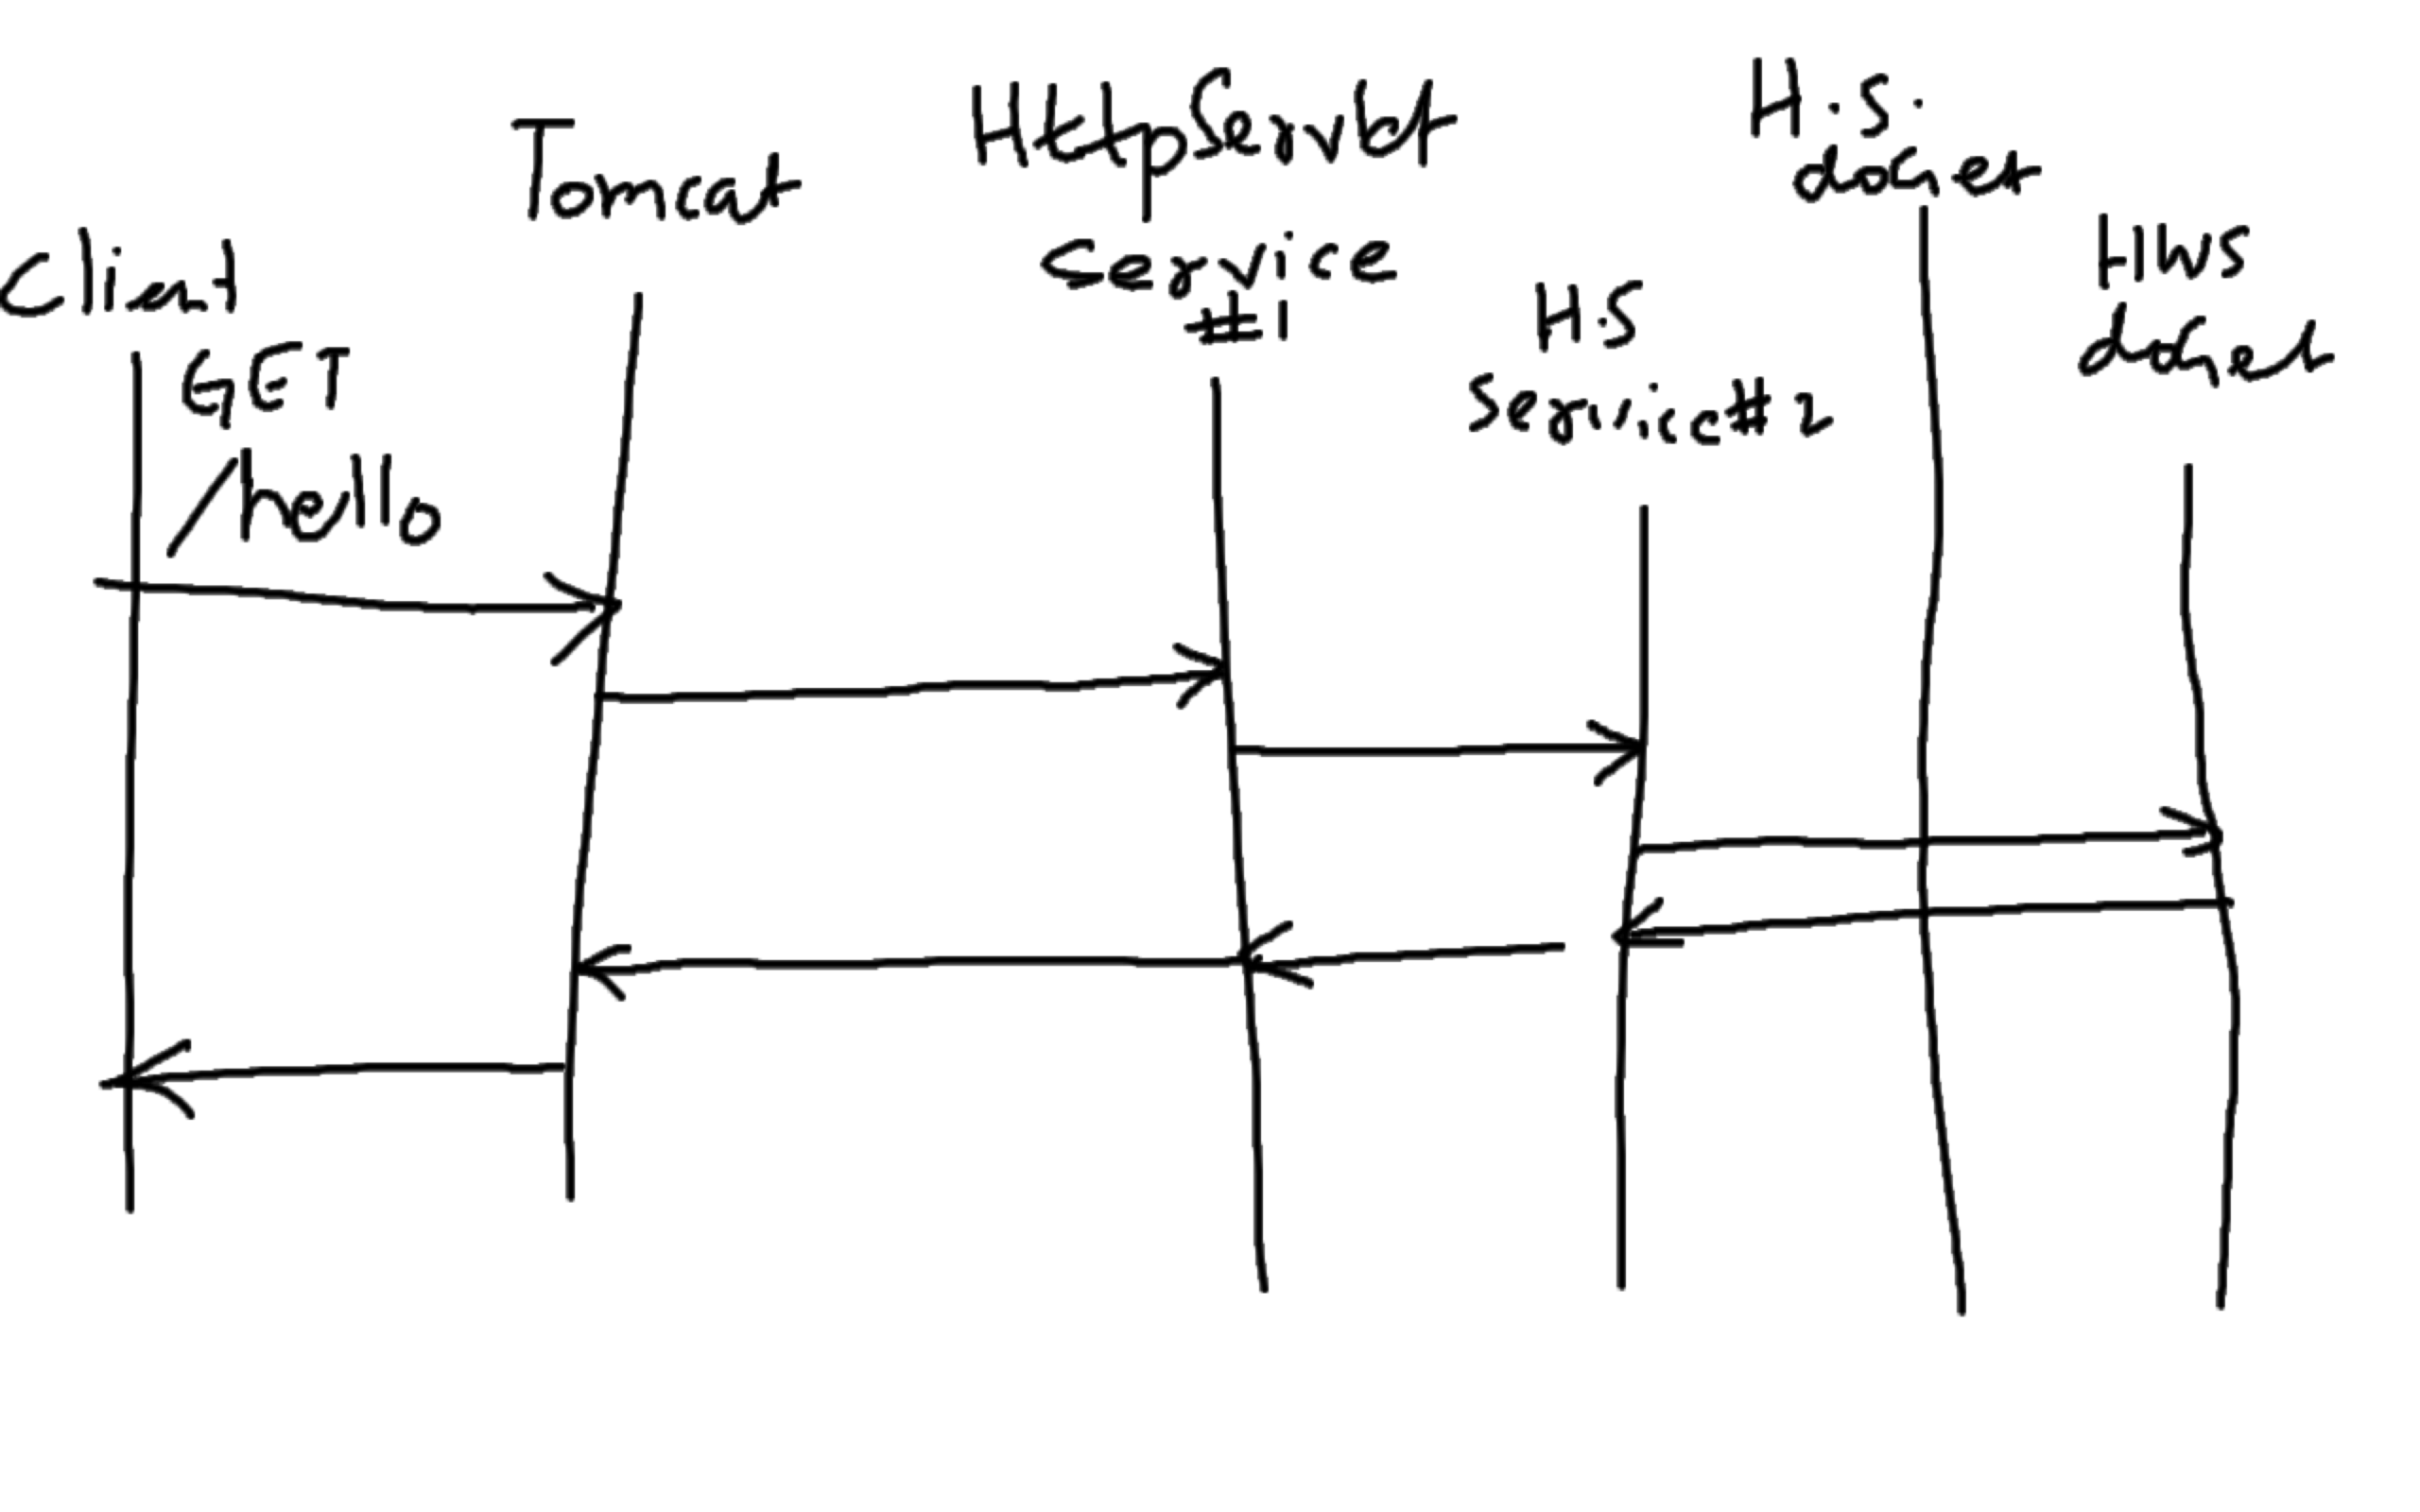 Client
GET
/hello
Tomcat
HttpServlet
Service
#1
H.S
Service#2
H.S.
doGet
HWS
doGet